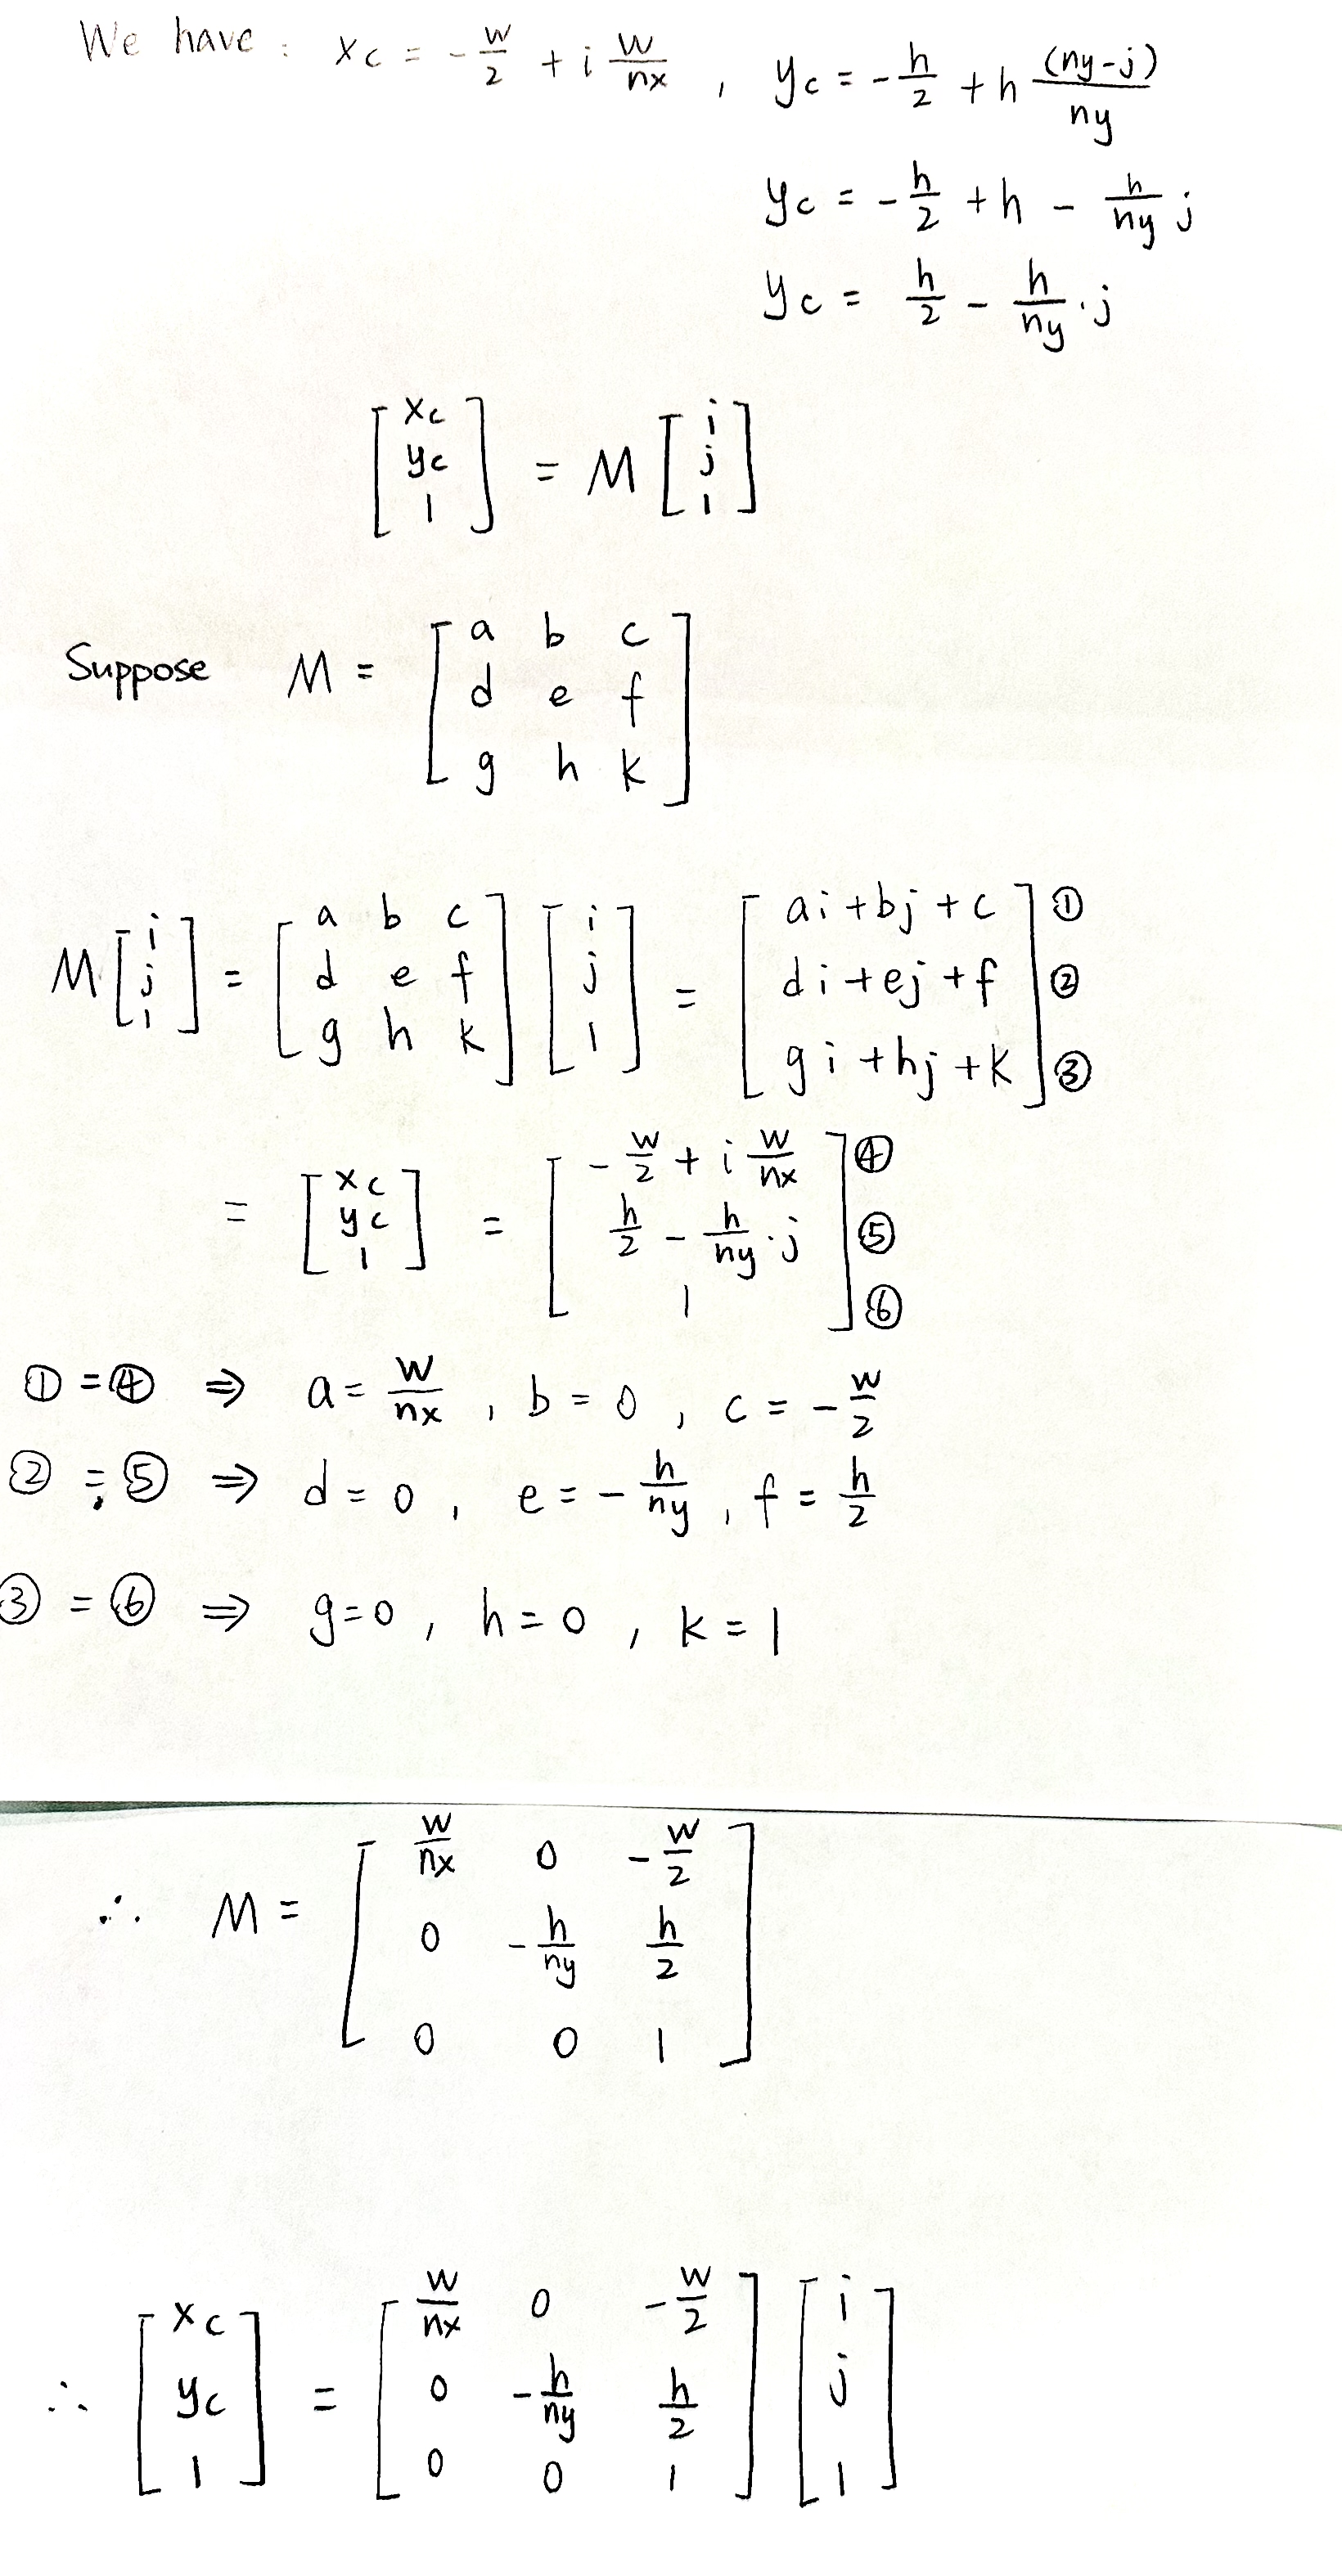 We have : xc = -w/2 + i w/nx , yc = -h/2 + h (ny-j)/ny
yc = -h/2 + h - h/ny j
yc = h/2 - h/ny · j
[xc yc 1] = M [i j 1]
Suppose M = [a b c
d e f
g h k]
M [i j 1] = [a b c
d e f
g h k] [i j 1] = [ai + bj + c ①
di + ej + f ②
gi + hj + k] ③
= [xc yc 1] = [-w/2 + i w/nx ④
h/2 - h/ny · j ⑤
1] ⑥
① = ④ ⇒ a = w/nx , b = 0 , c = -w/2
② = ⑤ ⇒ d = 0 , e = -h/ny , f = h/2
③ = ⑥ ⇒ g = 0 , h = 0 , k = 1
∴ M = [w/nx 0 -w/2
0 -h/ny h/2
0 0 1]
∴ [xc yc 1] = [w/nx 0 -w/2
0 -h/ny h/2
0 0 1] [i j 1]